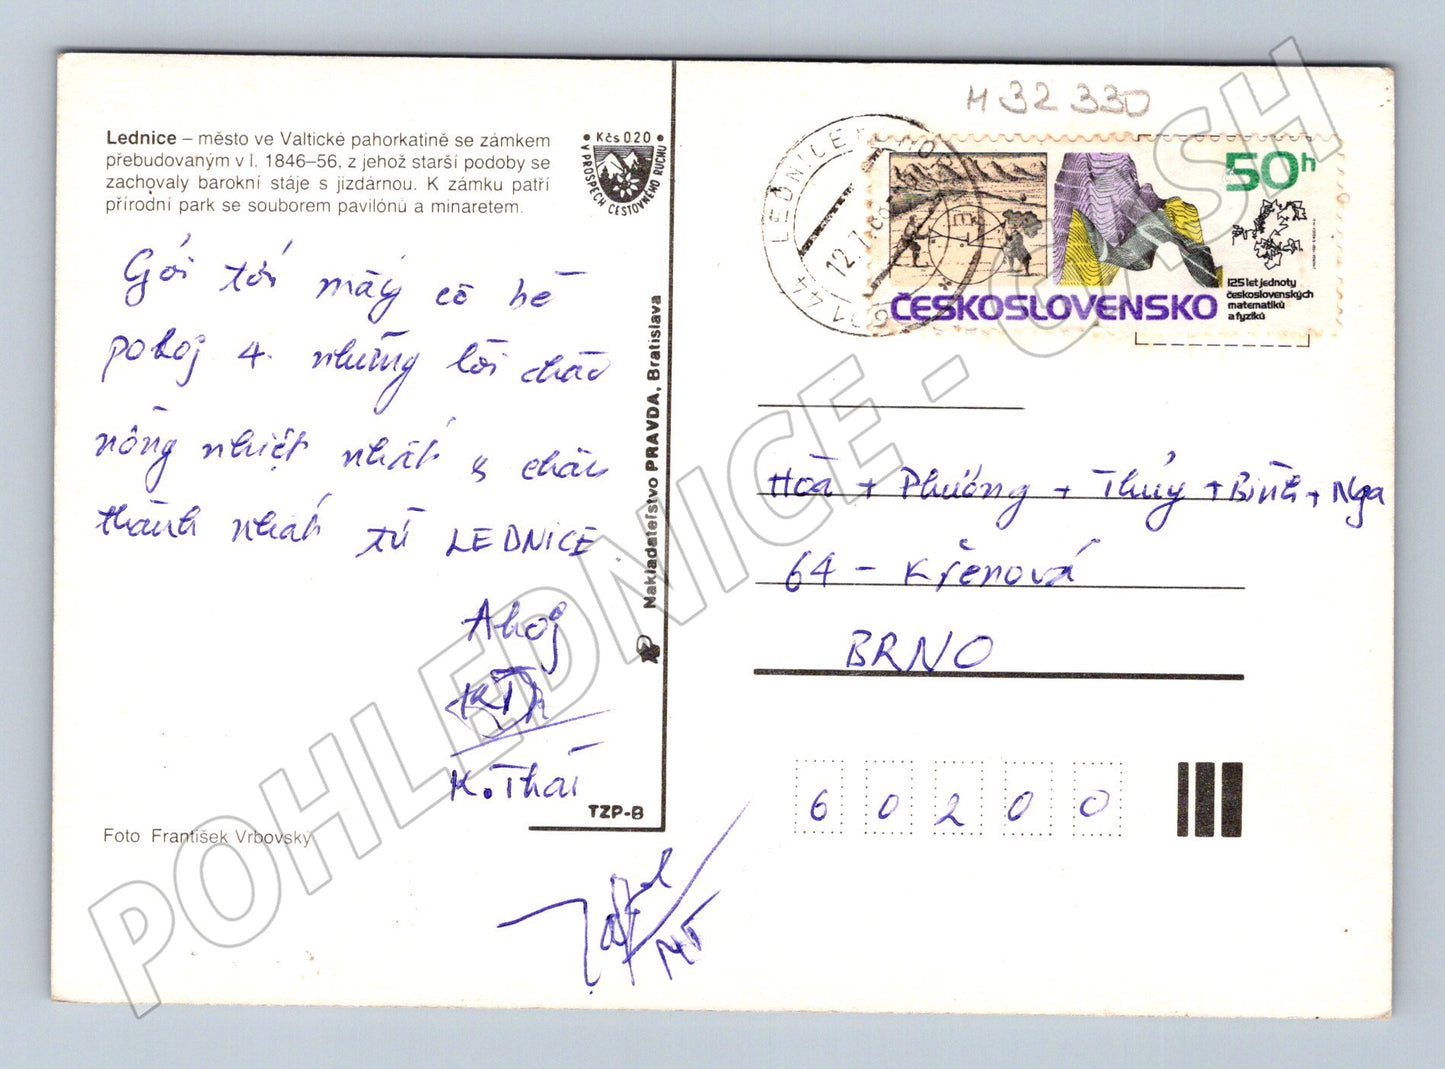 Lednice – město ve Valtické pahorkatině se zámkem
přebudovaným v l. 1846–56, z jehož starší podoby se
zachovaly barokní stáje s jízdárnou. K zámku patří
přírodní park se souborem pavilónů a minaretem.
• Kčs 020 •
V PROSPĚCH CESTOVNÉHO RUCHU
Gởi tới mấy cô bé
pokoj 4. những lời chào
nồng nhiệt nhất & chân
thành nhất từ LEDNICE.
Ahoj
K. Thái
Foto František Vrbovský
TZP-B
Nakladateľstvo PRAVDA, Bratislava
M 32 330
691 44 LEDNICE NA MOR
12.7.88
50h
ČESKOSLOVENSKO
125 let jednoty
československých
matematiků
a fyziků
Hòa + Phương + Thúy + Bình + Nga
64 – Křenová
BRNO
6 0 2 0 0
POHLEDNICE - CASH